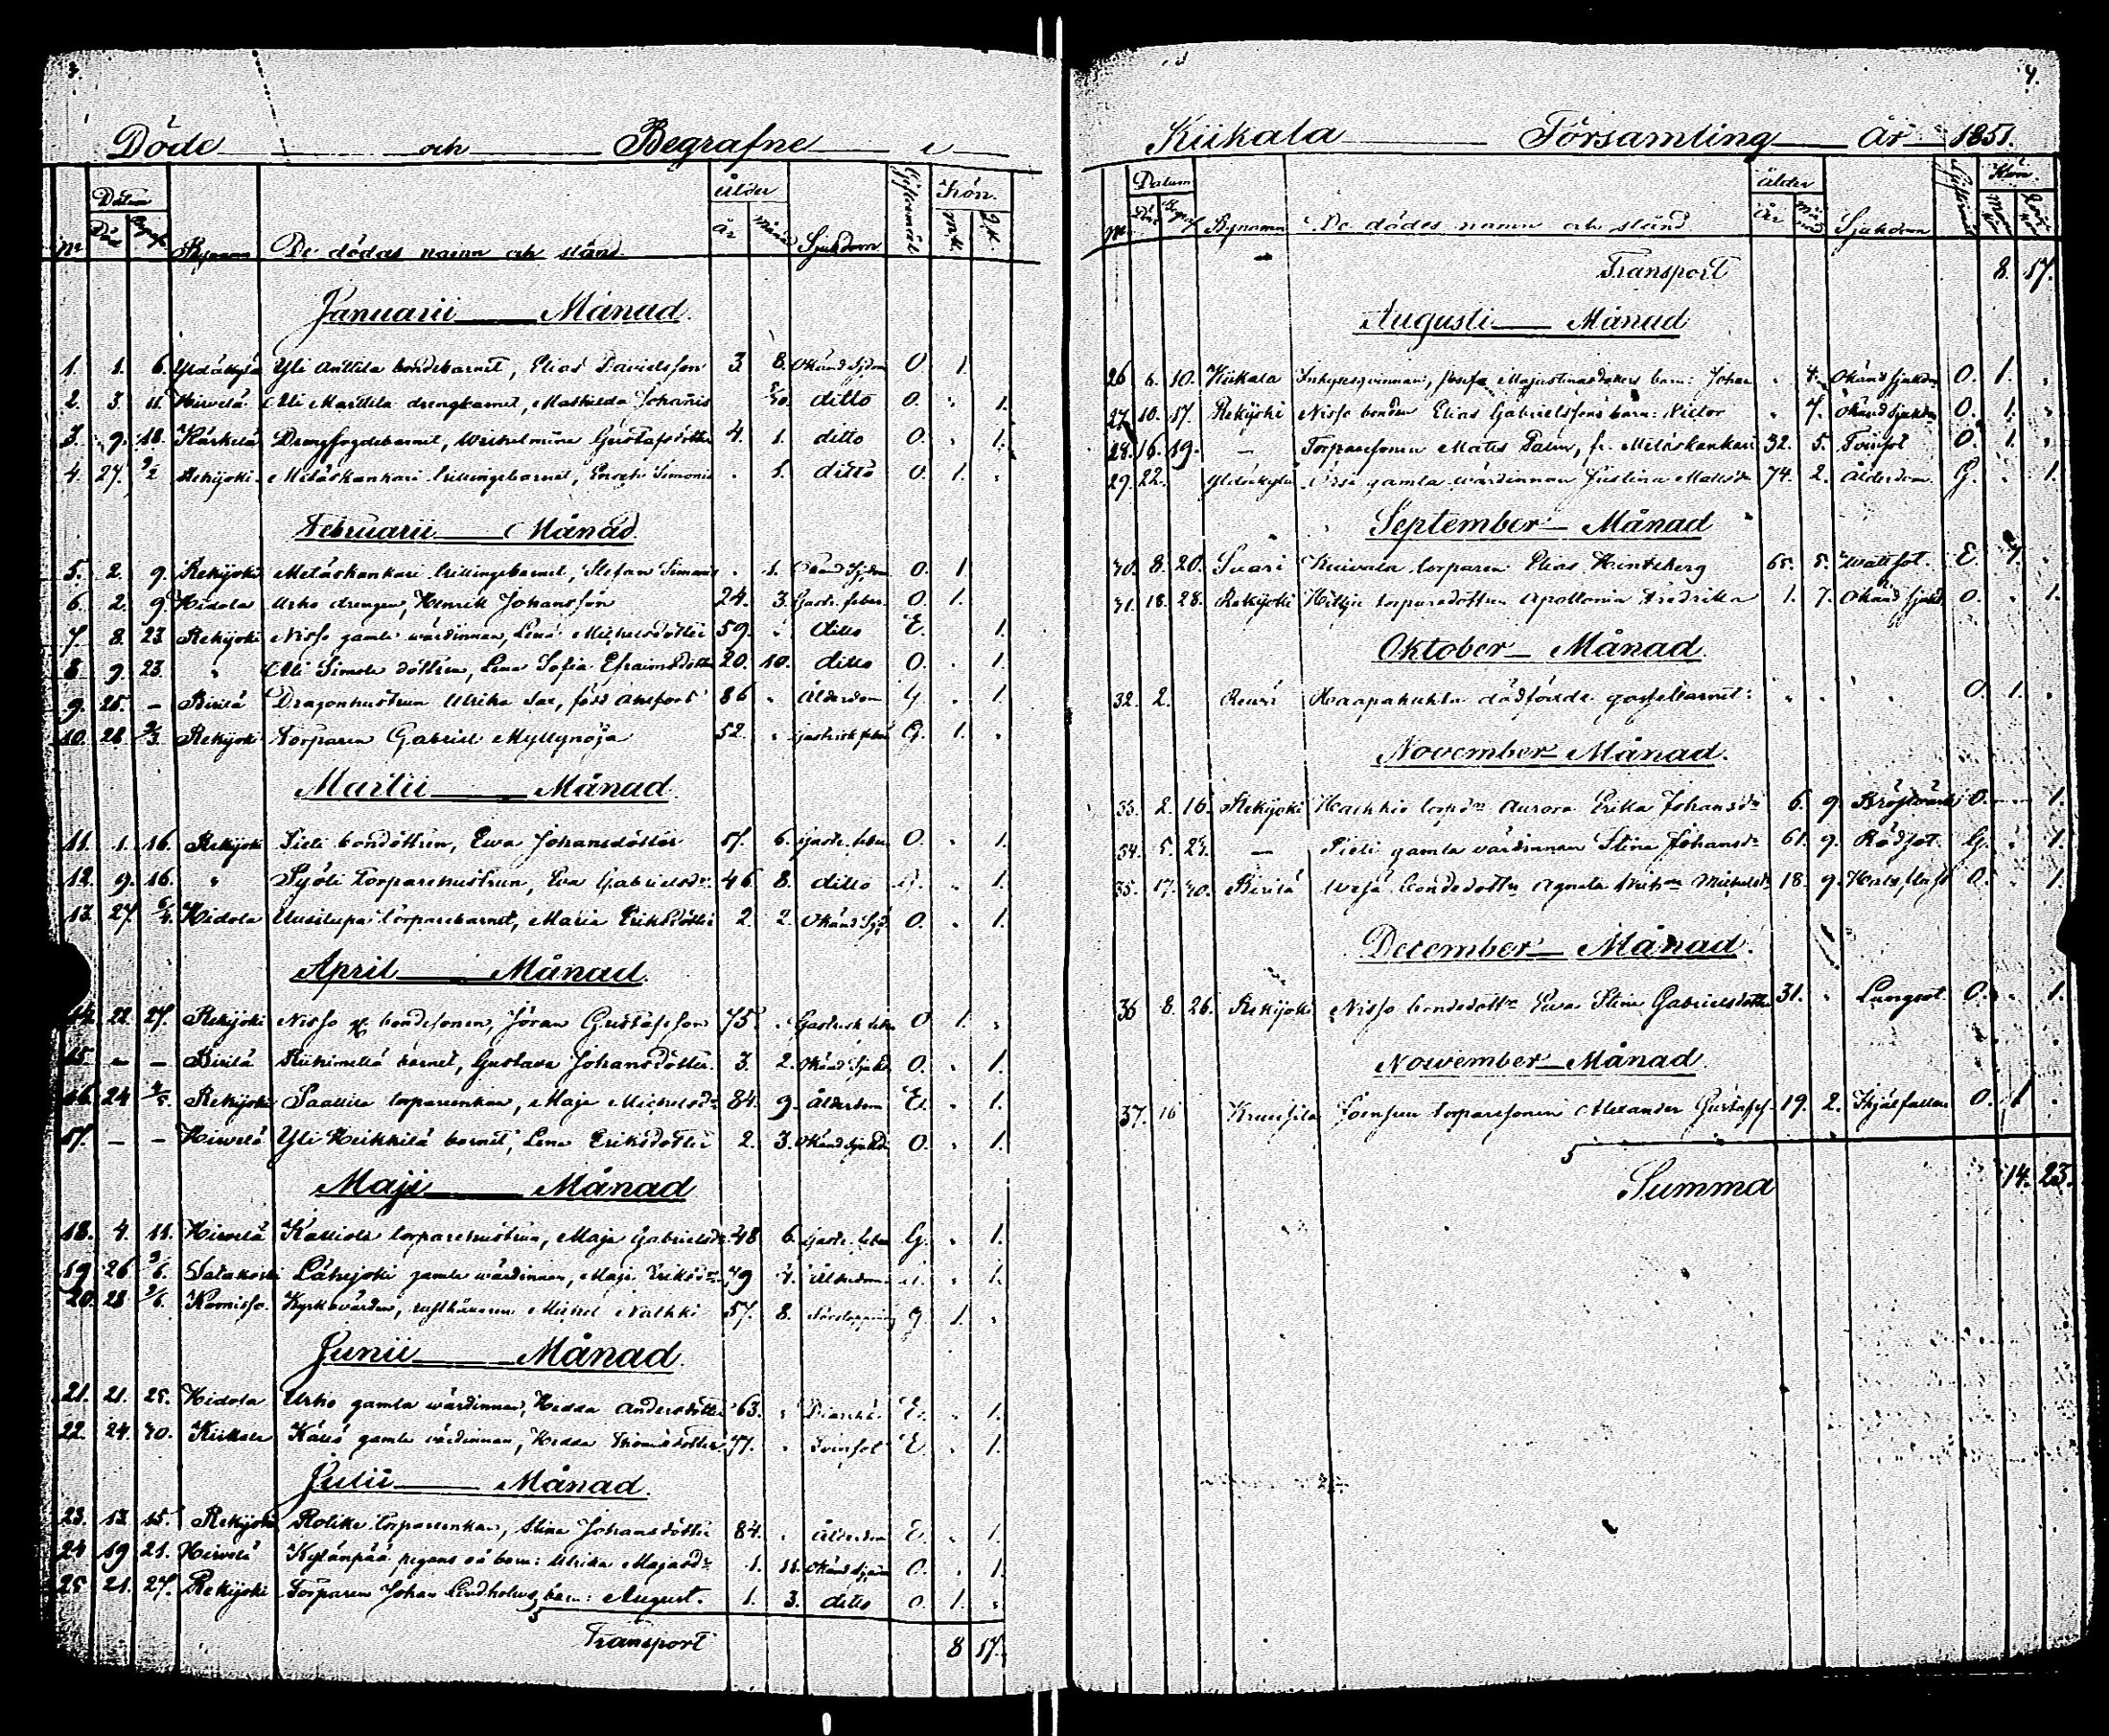 3.
Döde och Begrafne i
Datum Ålder Giftermål Kön.
No Död Begrf Bynamn De dödas namn och stånd. år Månad Sjukdom M.k. Q.k.
Januarii Månad.
1. 1. 6. Yldäkylä Yli Anttila bondebarnet, Elias Davidsson 3. 8. Okänd Sjdom O 1.
2. 3. 11. Hirvelä Ali Marttila drengbarnet, Mathilda Johanis ditto O. " 1.
3. 9. 18. Kärkelä Drengfogdebarnet, Wilhelmina Gustafsdotter 4. 1. ditto O. " 1.
4. 27. 9/2 Rekijoki Metäskankari trillingebarnet, Enoch Simonis " 1. ditto O. 1. "
Februarii Månad.
5. 2. 9. Rekijoki Metäskankari trillingebarnet, Stefan Simonis " 1. Okänd Sjdom O. 1.
6. 2. 9. Hidola Urho drengen, Henrik Johansson 24. 3. Gastr. feber O. 1.
7. 8. 23. Rekijoki Nisso gamla wärdinnan, Lena Michelsdotter 59. " ditto E. 1.
8. 9. 23. " Ali Simola dottren, Lena Sofia Efraimsdotter 20. 10. ditto O. " 1.
9. 25. — Pirilä Dragonhustrun Ulrika Sax, född Ahlfort 86 " Ålderdom G. " 1.
10. 28 9/3. Rekijoki Torparen Gabriel Myllynoja 52. " Gastrisk feber G. 1. "
Martii Månad.
11. 1. 16. Rekijoki Pieli bondottren, Ewa Johansdotter 17. 6. Gastr. feber O. " 1.
12. 9. 16. " Syöli Torparehustrun, Eva Gabrielsdr 46 8. ditto G. " 1.
13. 27 6/4. Hidola Uusitupa torparebarnet, Maria Eriksdotter 2. 2. Okänd Sjd. O. " 1.
April Månad.
14. 22. 27. Rekijoki Nisso bondesonen, Jöran Gustafsson 75. " Gastrisk feber O 1. "
15. — — Pirilä Riihimellä barnet, Gustava Johansdotter. 3. 2. Okänd Sjukd. O. " 1.
16. 24 4/5. Rekijoki Saallila torparenkan, Maja Michelsdr 84. 9. Ålderdom E. " 1.
17. — — Hirvelä Yli Heikkilä barnet, Lena Eriksdotter 2. 3. Okänd sjukd. O. " 1.
Maji Månad
18. 4. 11. Hirvelä Kalliola torparehustrun, Maja Gabrielsdr 48 6. Gastr. feber G. " 1.
19. 26 9/6. Satakoski Lähijoki gamla wärdinnan, Maja Eriksdr 79 4. Ålderdom " 1.
20. 28 9/6. Komisso. Kyrkovärden, rusthållaren Michel Nalkki 57. 8. G. 1. "
Junii Månad.
21. 21. 25. Hidola Urho gamla wärdinnan, Hedda Andersdotter 63. " Diarrhé. E. " 1.
22. 24. 30. Kiikala Källä gamla wärdinnan, Hedda Thomasdotter 77. " Tvinsot E. " 1.
Julii Månad.
23. 13. 15. Rekijoki Rolika torparenkan, Stina Johansdotter 84. " Ålderdom E. " 1.
24 19 21. Hirvelä Kylänpää pigans oä barn: Ulrika Majasdr 1. 11. Okänd sjdom O. " 1.
25 21. 27. Rekijoki Torparen Johan Lindholms barn: August. 1. 3. ditto O. 1. "
Transport 8 17.
4.
Kiikala Församling År 1851.
Datum Ålder Giftermål Kön.
No Död Begraf Bynamn De dödas namn och stånd år Månad Sjukdom
Transport 8. 17.
Augusti Månad
26 6. 10. Kiikala Inhysesqvinnan, Josefa Majastinasdotters barn: Johan " 4. Okänd sjukdm O. 1. "
27. 10. 17. Rekijoki Nisso bonden Elias Gabrielssons barn: Victor " 7. Okänd sjukdm O. 1. "
28. 16. 19. — Torparesonen Matts Palm, fr. Metäskankari 32. 5. Tvinsot O. 1. "
29. 22. Yldäkylä Örsi gamla wärdinnan Justina Mattsdr 74. 2. Ålderdom. G. " 1.
September Månad
30. 8. 20. Suari Kuivala torparen Elias Hintzberg 65. 5. Wattsot. E. 1. "
31. 18. 28. Rekijoki Hillju torparedottren Apollonia Fredrika 1. 7. Okänd sjukd. O. " 1.
Oktober Månad.
32. 2. Rauri Haapahuhta dödfödde gossebarnet. " " " O. 1. "
November Månad.
33. 2. 16. Rekijoki Haihkio torpdn Aurora Erika Johansdr 6. 9. Bröstwärk O. " 1.
34. 5. 23. — Pieli gamla wärdinnan Stina Johansdr 61. 9. Rödsot. G. " 1.
35. 17. 30. Pirilä bondedottn Agnata Michelsdr 18. 9. O. " 1.
December Månad.
36 8. 26. Rekijoki Nisso bondedottn Ewa Stina Gabrielsdotter 31. " Lungsot O. " 1.
November Månad.
37. 16 Kruusila torparesonen Alexander Gustafss. 19. 2. Ihjälfallen O. 1 "
Summa 14. 23.